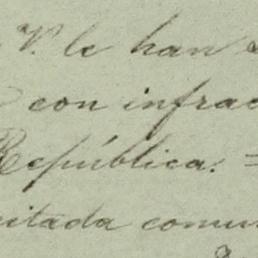 V. le han
con infrac
República. =
citada comu